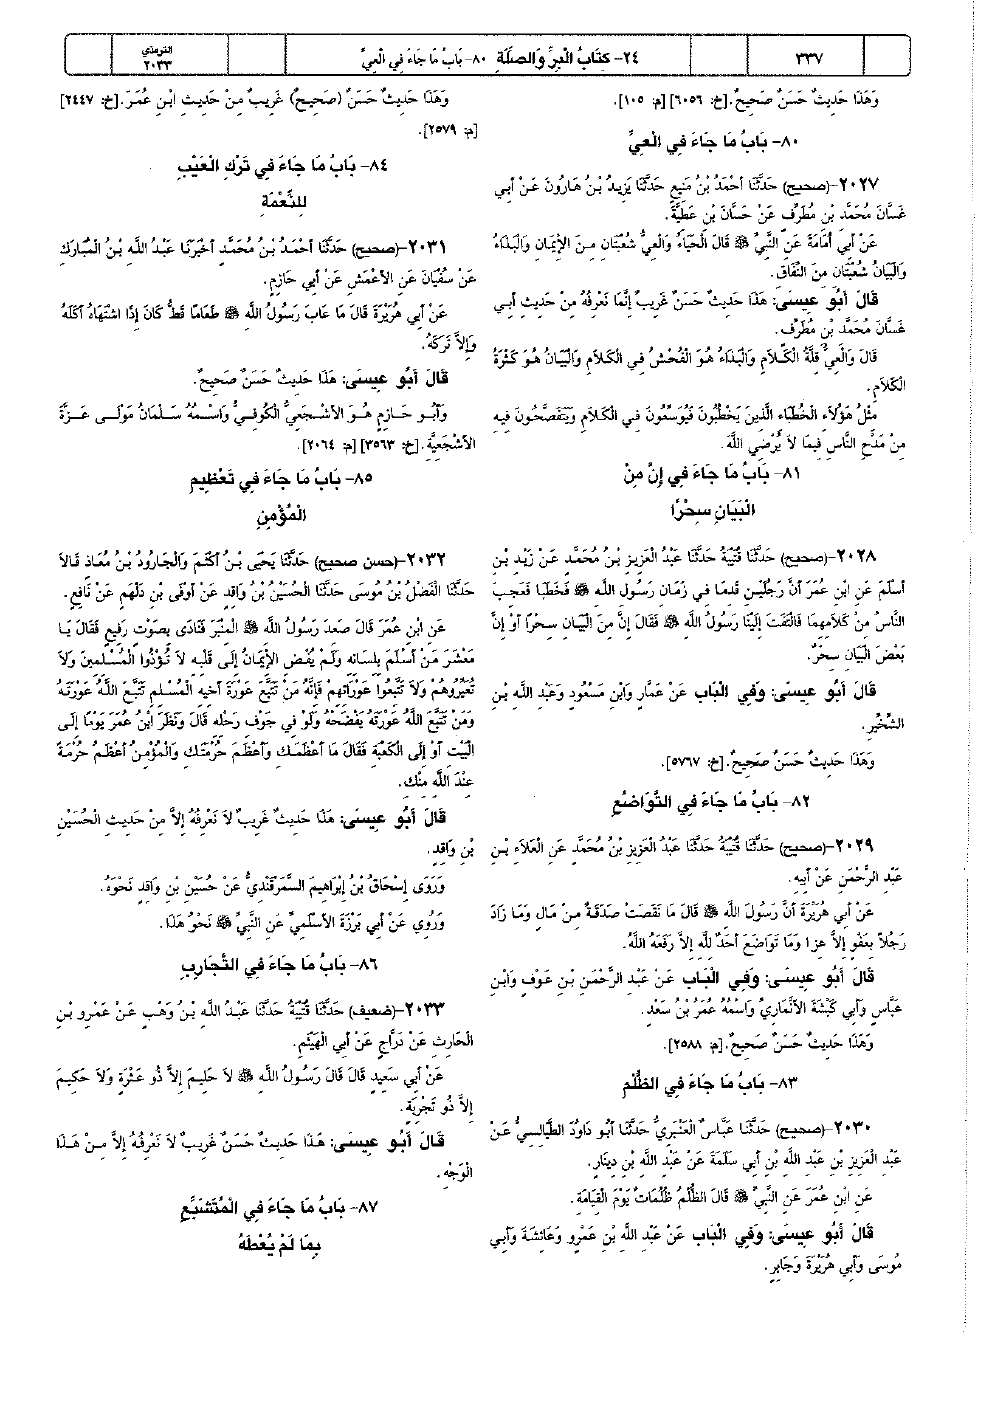 ٣٣٧
٢٤- كتَابُ الْبِرِّ وَالصِّلَةِ ٨٠- بَابُ مَا جَاءَ فِي الْعِيِّ
الترمذي
٢٠٣٣
وَهَذَا حَدِيثٌ حَسَنٌ صَحِيحٌ.[خ: ٦٠٥٦] [م: ١٠٥].
٨٠- بَابُ مَا جَاءَ فِي الْعِيِّ
٢٠٢٧-(صحيح) حَدَّثَنَا أَحْمَدُ بْنُ مَنِيعٍ حَدَّثَنَا يَزِيدُ بْنُ هَارُونَ عَنْ أَبِي
غَسَّانَ مُحَمَّدِ بْنِ مُطَرِّفٍ عَنْ حَسَّانَ بْنِ عَطِيَّةَ.
عَنْ أَبِي أُمَامَةَ عَنِ النَّبِيِّ ﷺ قَالَ الْحَيَاءُ وَالْعِيُّ شُعْبَتَانِ مِنَ الْإِيمَانِ وَالْبَذَاءُ
وَالْبَيَانُ شُعْبَتَانِ مِنَ النِّفَاقِ.
قَالَ أَبُو عِيسَى: هَذَا حَدِيثٌ حَسَنٌ غَرِيبٌ إِنَّمَا نَعْرِفُهُ مِنْ حَدِيثِ أَبِي
غَسَّانَ مُحَمَّدِ بْنِ مُطَرِّفٍ.
قَالَ وَالْعِيُّ قِلَّةُ الْكَلَامِ وَالْبَذَاءُ هُوَ الْفُحْشُ فِي الْكَلَامِ وَالْبَيَانُ هُوَ كَثْرَةُ
الْكَلَامِ.
مِثْلُ هَؤُلَاءِ الْخُطَبَاءِ الَّذِينَ يَخْطُبُونَ فَيُوَسِّعُونَ فِي الْكَلَامِ وَيَتَفَصَّحُونَ فِيهِ
مِنْ مَدْحِ النَّاسِ فِيمَا لَا يُرْضِي اللَّهَ.
٨١- بَابُ مَا جَاءَ فِي إِنَّ مِنْ
الْبَيَانِ سِحْرًا
٢٠٢٨-(صحيح) حَدَّثَنَا قُتَيْبَةُ حَدَّثَنَا عَبْدُ الْعَزِيزِ بْنُ مُحَمَّدٍ عَنْ زَيْدِ بْنِ
أَسْلَمَ عَنِ ابْنِ عُمَرَ أَنَّ رَجُلَيْنِ قَدِمَا فِي زَمَانِ رَسُولِ اللَّهِ ﷺ فَخَطَبَا فَعَجِبَ
النَّاسُ مِنْ كَلَامِهِمَا فَالْتَفَتَ إِلَيْنَا رَسُولُ اللَّهِ ﷺ فَقَالَ إِنَّ مِنَ الْبَيَانِ سِحْرًا أَوْ إِنَّ
بَعْضَ الْبَيَانِ سِحْرٌ.
قَالَ أَبُو عِيسَى: وَفِي الْبَابِ عَنْ عَمَّارٍ وَابْنِ مَسْعُودٍ وَعَبْدِ اللَّهِ بْنِ
الشِّخِّيرِ.
وَهَذَا حَدِيثٌ حَسَنٌ صَحِيحٌ.[خ: ٥٧٦٧].
٨٢- بَابُ مَا جَاءَ فِي التَّوَاضُعِ
٢٠٢٩-(صحيح) حَدَّثَنَا قُتَيْبَةُ حَدَّثَنَا عَبْدُ الْعَزِيزِ بْنُ مُحَمَّدٍ عَنِ الْعَلَاءِ بْنِ
عَبْدِ الرَّحْمَنِ عَنْ أَبِيهِ.
عَنْ أَبِي هُرَيْرَةَ أَنَّ رَسُولَ اللَّهِ ﷺ قَالَ مَا نَقَصَتْ صَدَقَةٌ مِنْ مَالٍ وَمَا زَادَ
رَجُلًا بِعَفْوٍ إِلَّا عِزًّا وَمَا تَوَاضَعَ أَحَدٌ لِلَّهِ إِلَّا رَفَعَهُ اللَّهُ.
قَالَ أَبُو عِيسَى: وَفِي الْبَابِ عَنْ عَبْدِ الرَّحْمَنِ بْنِ عَوْفٍ وَابْنِ
عَبَّاسٍ وَأَبِي كَبْشَةَ الْأَنَّمَارِيِّ وَاسْمُهُ عُمَرُ بْنُ سَعْدٍ.
وَهَذَا حَدِيثٌ حَسَنٌ صَحِيحٌ.[م: ٢٥٨٨].
٨٣- بَابُ مَا جَاءَ فِي الظُّلْمِ
٢٠٣٠-(صحيح) حَدَّثَنَا عَبَّاسٌ الْعَنْبَرِيُّ حَدَّثَنَا أَبُو دَاوُدَ الطَّيَالِسِيُّ عَنْ
عَبْدِ الْعَزِيزِ بْنِ عَبْدِ اللَّهِ بْنِ أَبِي سَلَمَةَ عَنْ عَبْدِ اللَّهِ بْنِ دِينَارٍ.
عَنِ ابْنِ عُمَرَ عَنِ النَّبِيِّ ﷺ قَالَ الظُّلْمُ ظُلُمَاتٌ يَوْمَ الْقِيَامَةِ.
قَالَ أَبُو عِيسَى: وَفِي الْبَابِ عَنْ عَبْدِ اللَّهِ بْنِ عَمْرٍو وَعَائِشَةَ وَأَبِي
مُوسَى وَأَبِي هُرَيْرَةَ وَجَابِرٍ.
وَهَذَا حَدِيثٌ حَسَنٌ (صَحِيحٌ) غَرِيبٌ مِنْ حَدِيثِ ابْنِ عُمَرَ.[خ: ٢٤٤٧]
[م: ٢٥٧٩].
٨٤- بَابُ مَا جَاءَ فِي تَرْكِ الْعَيْبِ
لِلنِّعْمَةِ
٢٠٣١-(صحيح) حَدَّثَنَا أَحْمَدُ بْنُ مُحَمَّدٍ أَخْبَرَنَا عَبْدُ اللَّهِ بْنُ الْمُبَارَكِ
عَنْ سُفْيَانَ عَنِ الْأَعْمَشِ عَنْ أَبِي حَازِمٍ.
عَنْ أَبِي هُرَيْرَةَ قَالَ مَا عَابَ رَسُولُ اللَّهِ ﷺ طَعَامًا قَطُّ كَانَ إِذَا اشْتَهَاهُ أَكَلَهُ
وَإِلَّا تَرَكَهُ.
قَالَ أَبُو عِيسَى: هَذَا حَدِيثٌ حَسَنٌ صَحِيحٌ.
وَأَبُو حَازِمٍ هُوَ الْأَشْجَعِيُّ الْكُوفِيُّ وَاسْمُهُ سَلْمَانُ مَوْلَى عَزَّةَ
الْأَشْجَعِيَّةِ.[خ: ٣٥٦٣] [م: ٢٠٦٤].
٨٥- بَابُ مَا جَاءَ فِي تَعْظِيمِ
الْمُؤْمِنِ
٢٠٣٢-(حسن صحيح) حَدَّثَنَا يَحْيَى بْنُ أَكْثَمَ وَالْجَارُودُ بْنُ مُعَاذٍ قَالَا
حَدَّثَنَا الْفَضْلُ بْنُ مُوسَى حَدَّثَنَا الْحُسَيْنُ بْنُ وَاقِدٍ عَنْ أَوْفَى بْنِ دَلْهَمٍ عَنْ نَافِعٍ.
عَنِ ابْنِ عُمَرَ قَالَ صَعِدَ رَسُولُ اللَّهِ ﷺ الْمِنْبَرَ فَنَادَى بِصَوْتٍ رَفِيعٍ فَقَالَ يَا
مَعْشَرَ مَنْ أَسْلَمَ بِلِسَانِهِ وَلَمْ يُفْضِ الْإِيمَانُ إِلَى قَلْبِهِ لَا تُؤْذُوا الْمُسْلِمِينَ وَلَا
تُعَيِّرُوهُمْ وَلَا تَتَّبِعُوا عَوْرَاتِهِمْ فَإِنَّهُ مَنْ تَتَبَّعَ عَوْرَةَ أَخِيهِ الْمُسْلِمِ تَتَبَّعَ اللَّهُ عَوْرَتَهُ
وَمَنْ تَتَبَّعَ اللَّهُ عَوْرَتَهُ يَفْضَحْهُ وَلَوْ فِي جَوْفِ رَحْلِهِ قَالَ وَنَظَرَ ابْنُ عُمَرَ يَوْمًا إِلَى
الْبَيْتِ أَوْ إِلَى الْكَعْبَةِ فَقَالَ مَا أَعْظَمَكِ وَأَعْظَمَ حُرْمَتَكِ وَالْمُؤْمِنُ أَعْظَمُ حُرْمَةً
عِنْدَ اللَّهِ مِنْكِ.
قَالَ أَبُو عِيسَى: هَذَا حَدِيثٌ غَرِيبٌ لَا نَعْرِفُهُ إِلَّا مِنْ حَدِيثِ الْحُسَيْنِ
بْنِ وَاقِدٍ.
وَرَوَى إِسْحَاقُ بْنُ إِبْرَاهِيمَ السَّمَرْقَنْدِيُّ عَنْ حُسَيْنِ بْنِ وَاقِدٍ نَحْوَهُ.
وَرُوِيَ عَنْ أَبِي بَرْزَةَ الْأَسْلَمِيِّ عَنِ النَّبِيِّ ﷺ نَحْوُ هَذَا.
٨٦- بَابُ مَا جَاءَ فِي التَّجَارِبِ
٢٠٣٣-(ضعيف) حَدَّثَنَا قُتَيْبَةُ حَدَّثَنَا عَبْدُ اللَّهِ بْنُ وَهْبٍ عَنْ عَمْرِو بْنِ
الْحَارِثِ عَنْ دَرَّاجٍ عَنْ أَبِي الْهَيْثَمِ.
عَنْ أَبِي سَعِيدٍ قَالَ قَالَ رَسُولُ اللَّهِ ﷺ لَا حَلِيمَ إِلَّا ذُو عَثْرَةٍ وَلَا حَكِيمَ
إِلَّا ذُو تَجْرِبَةٍ.
قَالَ أَبُو عِيسَى: هَذَا حَدِيثٌ حَسَنٌ غَرِيبٌ لَا نَعْرِفُهُ إِلَّا مِنْ هَذَا
الْوَجْهِ.
٨٧- بَابُ مَا جَاءَ فِي الْمُتَشَبِّعِ
بِمَا لَمْ يُعْطَهُ